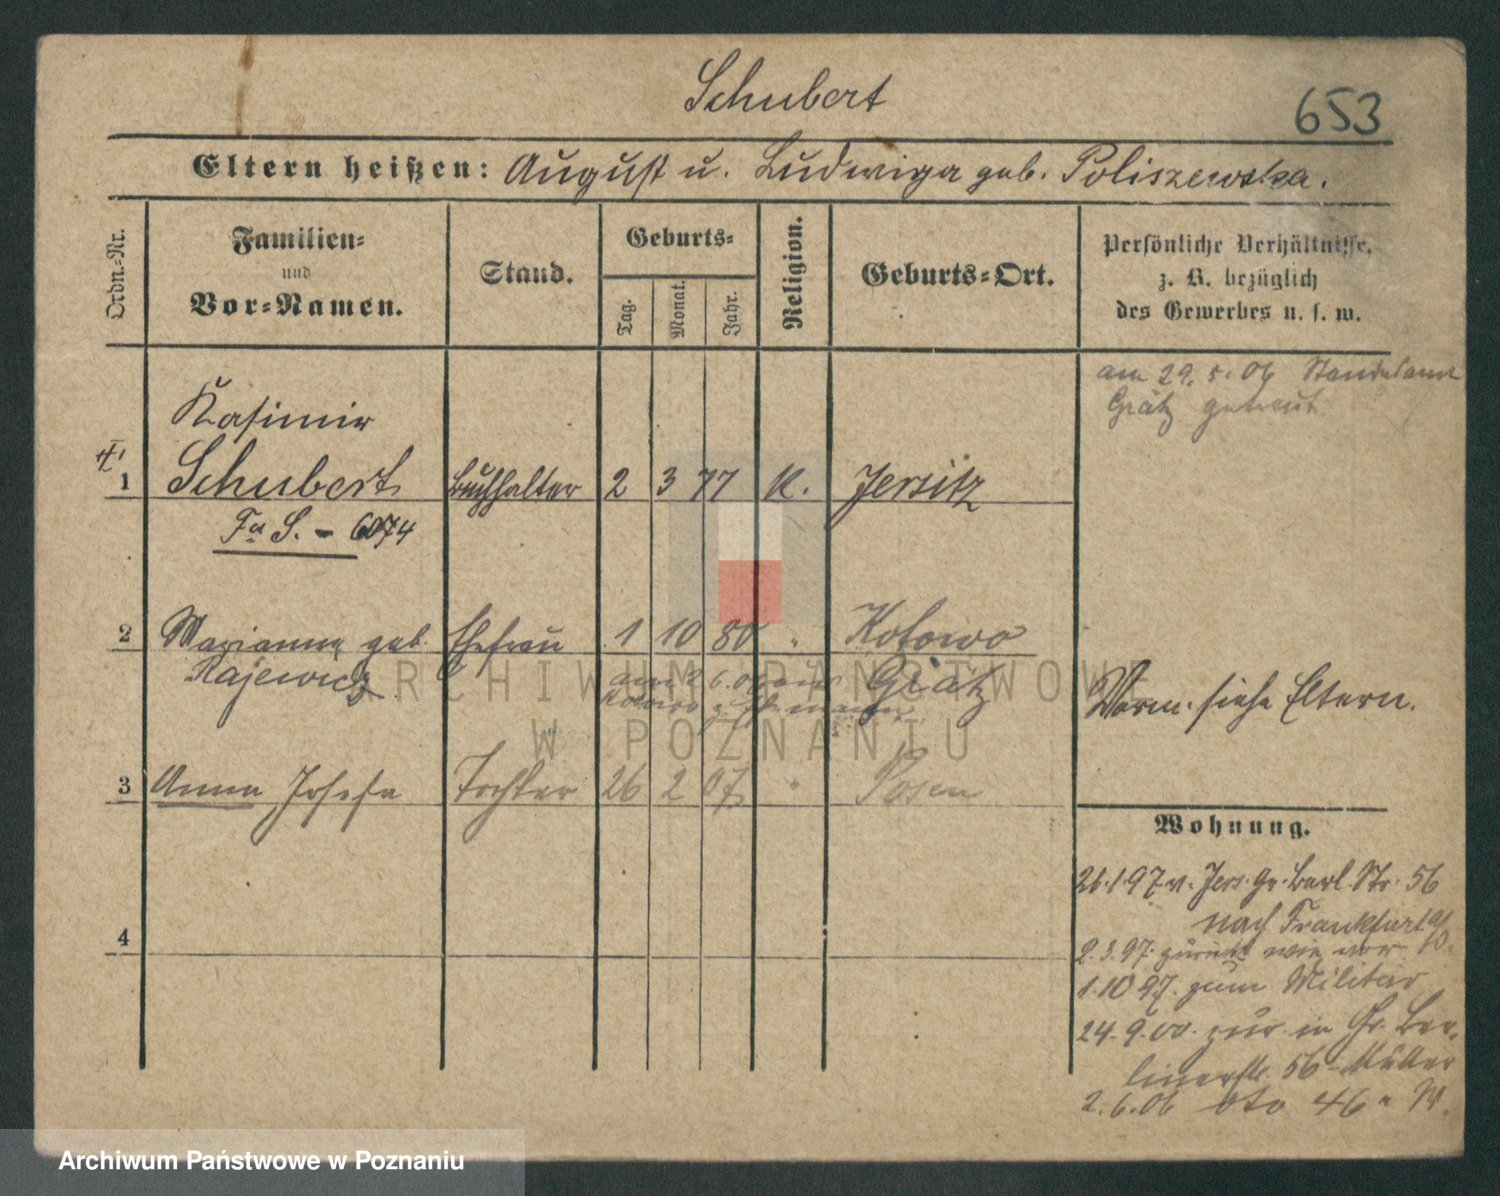 Schubert
653
Eltern heißen: August u. Ludwiga geb. Poliszewska.
Ordn.-Nr.
Familien-
und
Vor-Namen.
Stand.
Geburts-
Tag.
Monat.
Jahr.
Religion.
Geburts-Ort.
Persönliche Verhältnisse,
z. B. bezüglich
des Gewerbes u. s. w.
am 29. 5. 06 Standesamt
Grätz getraut
Kasimir
1 Schubert Buchhalter 2 3 77 K. Jersitz
Fa S. - 6074
2 Marianna geb. Ehefrau 1 10 80 " Kotowo
Rajewicz am 2 6. 06 aus Grätz
Kotowo z. Ehemann
Vorm. siehe Eltern.
3 Anna Josefa Tochter 26 2 07 " Posen
4
Wohnung.
26.1.97 v. Jers. Gr. Berl. Str. 56
nach Frankfurt a/O.
2.3.97. zurück wie vor
1.10 97. zum Militär
24.9.00. zur. in Gr. Ber-
linerstr. 56 - Mutter
2.6.06 dto 46 " W.
ARCHIWUM PAŃSTWOWE
W POZNANIU
Archiwum Państwowe w Poznaniu